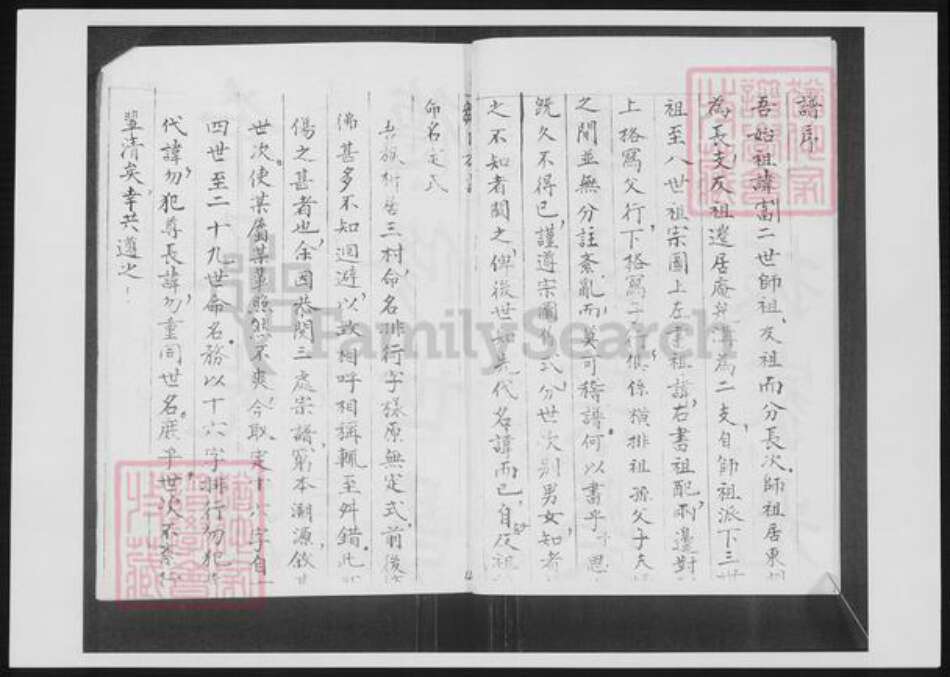 譜序
吾始祖諱富二世師祖、友祖而分長次。師祖居東
為長支,友祖遷居庵 為二支,自師祖派下三世
祖至八世祖宗圖上左書祖諱,右書祖配,兩邊對
上格寫父行,下格寫子行俱係橫排祖孫父子夫
之間並無分註紊亂,而莫可稽譜何以書乎。思
既久不得已,謹遵宗圖 式,分世次別男女,知者
之不知者闕之,俾後世知先代名諱而已,自友祖
命名定式
吾族衍 三村,命名排行字樣原無定式,前後
佛甚多不知迴避,以致相呼相稱輒至舛錯。此
傷之甚者也,余因共閱三處宗譜,窮本溯源,敘
世次。使某屬某輩照然不爽今取定十六字自
四世至二十九世命名務以十六字排行勿犯
代諱,勿犯尊長諱,勿重同世名。庶乎世次不紊
輩清矣,幸共遵之!
FamilySearch